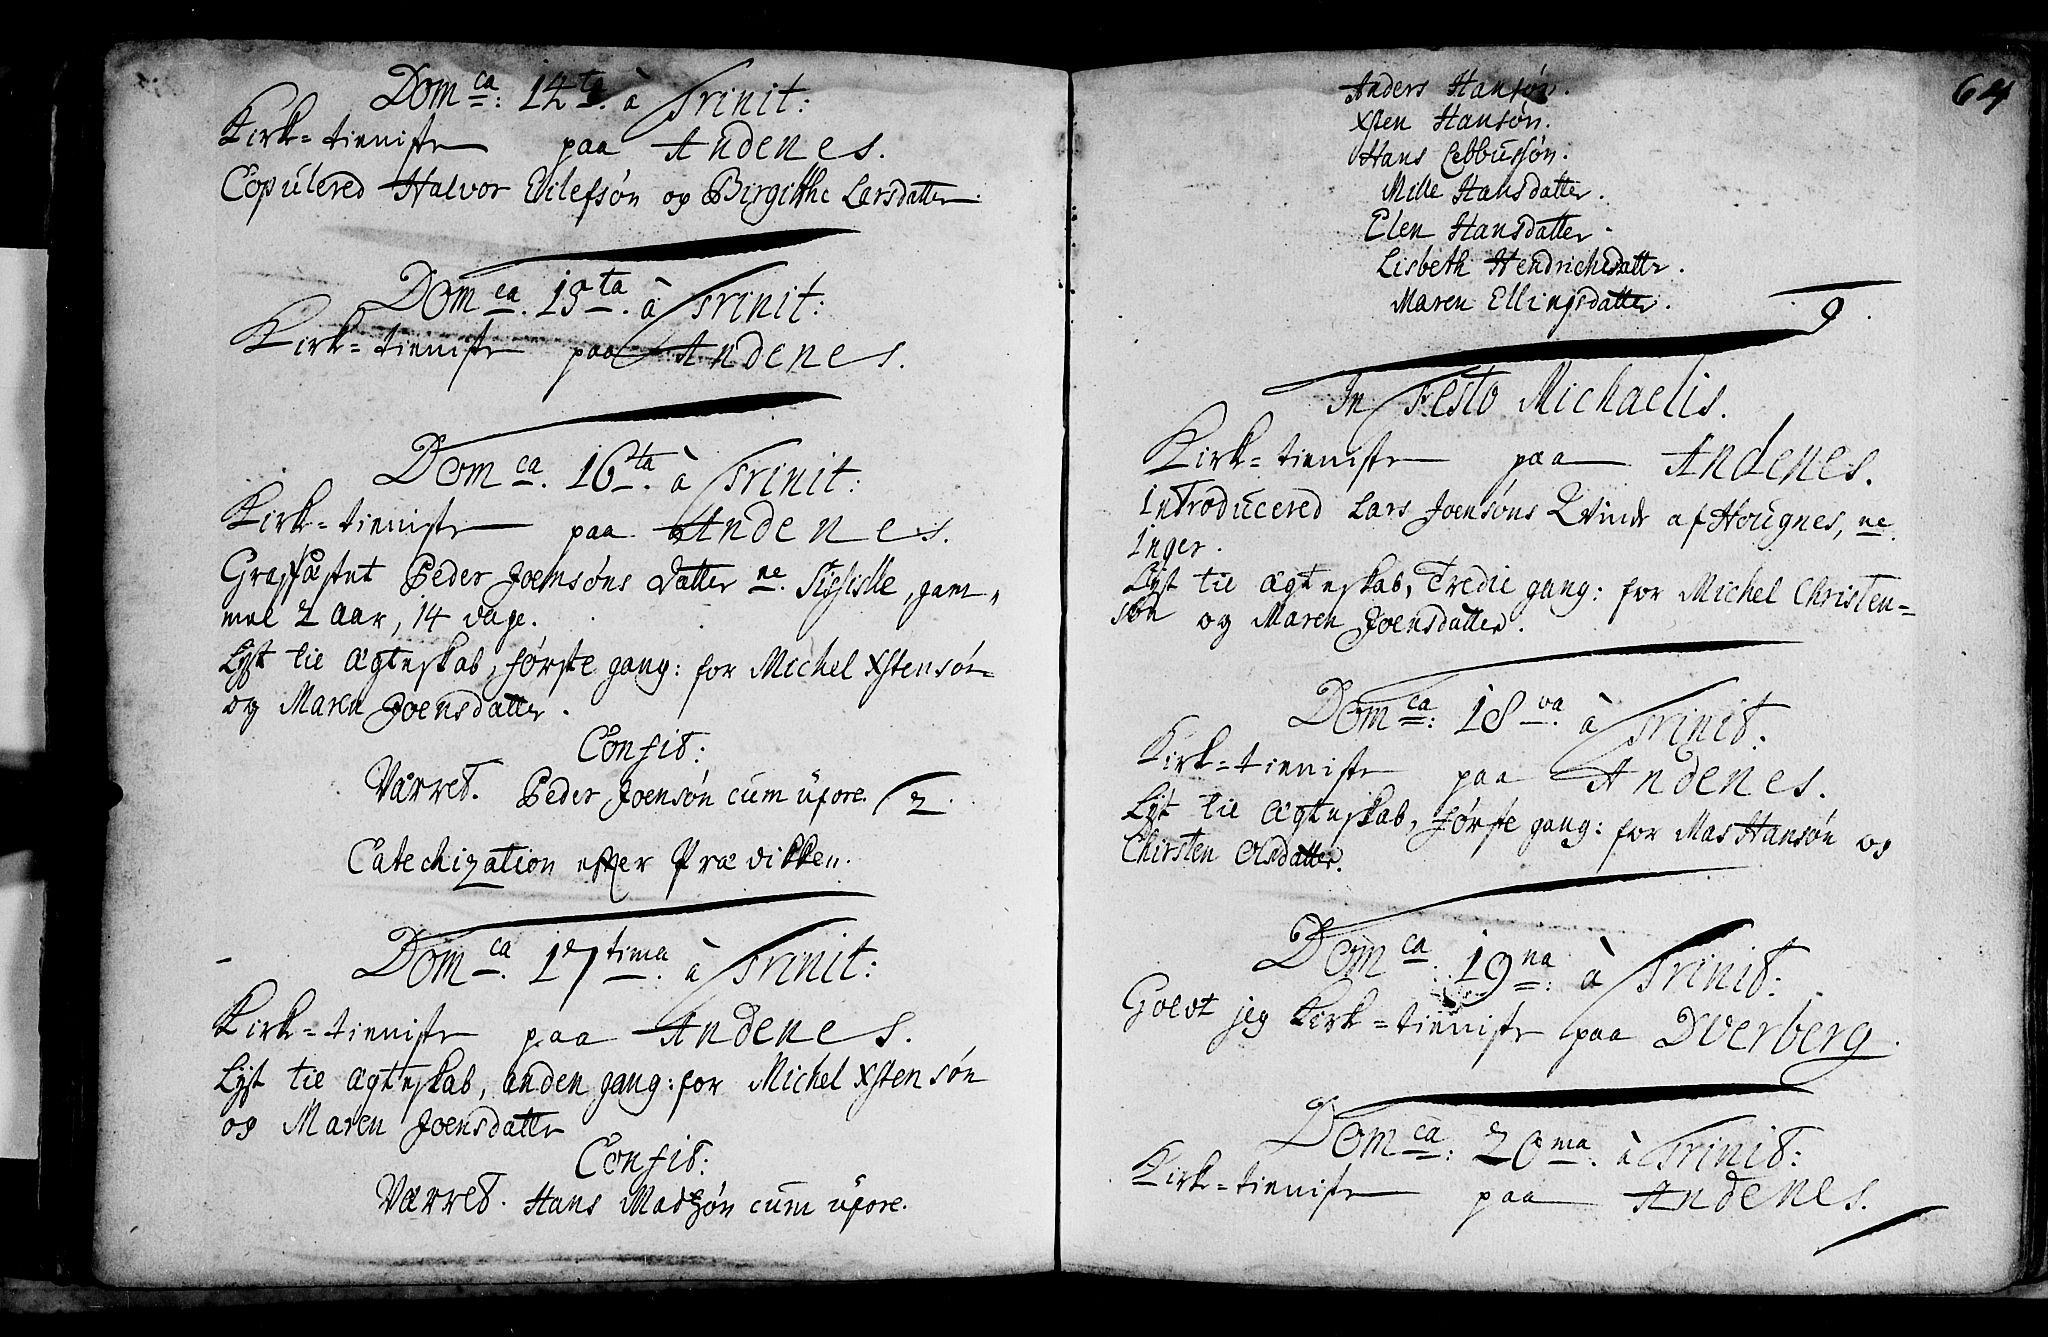 Dom ca: 14 ta. à Trinit:
Kirk-tieniste paa Andenes.
Copulered Halvor Eilefsøn og Birgitthe Larsdatter.
Dom ca. 15 ta. à Trinit:
Kirk-tieniste paa Andenes.
Dom ca. 16 ta. à Trinit:
Kirk-tieniste paa Andenes.
Graffæstet Peder Joensøns datter ne. Sissiele, gam-
mel 2 aar, 14 dage.
Lyst til ægteskab, første gang: for Michel Xstensøn
og Maren Joensdatter.
Confit:
Værret. Peder Joensøn cum uxore. 2.
Catechization efter Prædikken.
Dom ca. 17 tima. à Trinit:
Kirk-tieniste paa Andenes.
Lyst til ægteskab, anden gang: for Michel Xstensøn
og Maren Joensdatter
Confit:
Værret. Hans Madsøn cum uxore.
64
Anders Hansøn.
Xsten Hansøn.
Hans Ebbussøn.
Mille Hansdatter.
Elen Hansdatter.
Lisbeth Hendrichsdattr.
Maren Ellingsdatter. 9.
In Festo Michaelis.
Kirk-tieniste paa Andenes.
Introducered Lars Joensøns Qvinde af Hougnes, ne.
Inger.
Lyst til ægteskab, Tredie gang: for Michel Christen-
søn og Maren Joensdatter.
Dom ca: 18 va. à Trinit:
Kirk-tieniste paa Andenes.
Lyst til ægteskab, første gang: for Mas Hansøn og
Chirsten Olsdatter.
Dom ca. 19 na: à Trinit:
Holdt jeg Kirk-tieniste paa Dverberg.
Dom ca: 20 ma. à Trinit:
Kirk-tieniste paa Andenes.